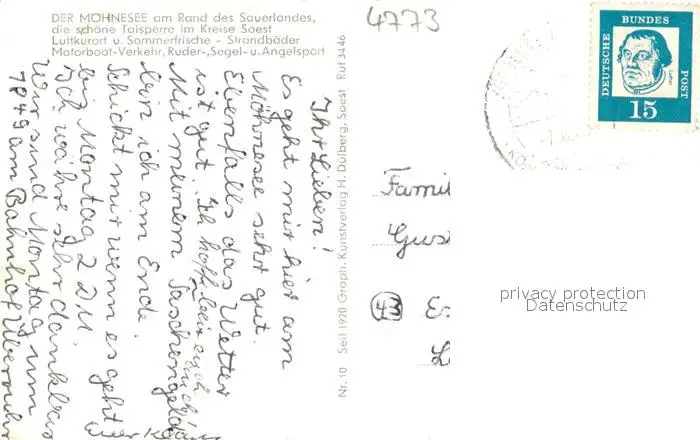 DER MÖHNESEE am Rand des Sauerlandes,
die schöne Talsperre im Kreise Soest
Luftkurort u. Sommerfrische - Strandbäder
Motorboot-Verkehr, Ruder-, Segel- u. Angelsport
4773
Ihr Lieben!
Es geht mir hier am
Möhnesee sehr gut.
Ebenfalls das Wetter
ist gut. Ich hoffe bei euch
auch
Mit meinem Taschengeld
bin ich am Ende.
Schickt mir wenn es geht
bis Montag 2 DM.
Ich währe sehr dankbar
Wir sind Montag um
1849 am Bahnhof Überruhr
Nr. 10 Seit 1920 Graph. Kunstverlag H. Dülberg, Soest Ruf 3446
DEUTSCHE
BUNDES
POST
Luther
15
Famil
Gus
43 Es
privacy protection
Datenschutz